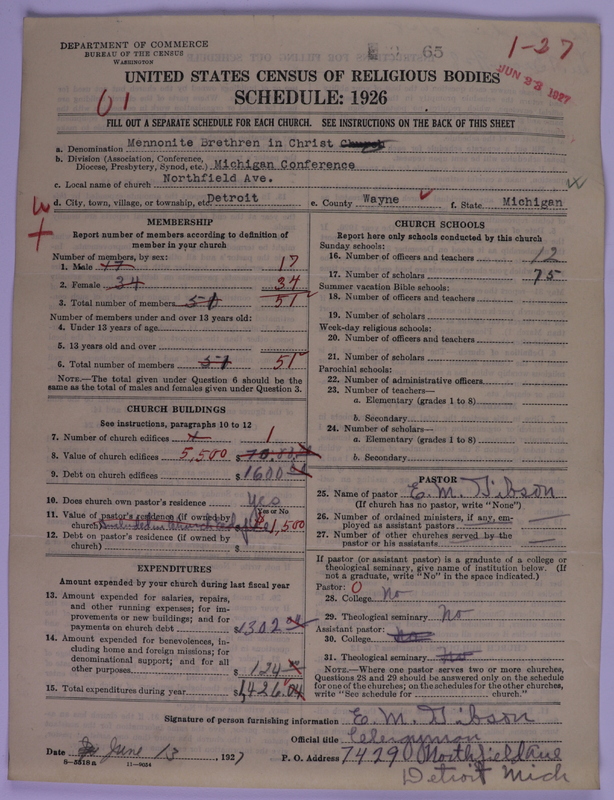 DEPARTMENT OF COMMERCE
BUREAU OF THE CENSUS
WASHINGTON
65
1-27
JUN 23 1927
UNITED STATES CENSUS OF RELIGIOUS BODIES
SCHEDULE: 1926
FILL OUT A SEPARATE SCHEDULE FOR EACH CHURCH. SEE INSTRUCTIONS ON THE BACK OF THIS SHEET
a. Denomination Mennonite Brethren in Christ Church
b. Division (Association, Conference,
Diocese, Presbytery, Synod, etc.) Michigan Conference
c. Local name of church Northfield Ave.
d. City, town, village, or township, etc. Detroit e. County Wayne f. State Michigan
MEMBERSHIP
Report number of members according to definition of
member in your church
Number of members, by sex:
1. Male 17 17
2. Female 34 34
3. Total number of members 51 51
Number of members under and over 13 years old:
4. Under 13 years of age
5. 13 years old and over
6. Total number of members 51 51
NOTE.—The total given under Question 6 should be the
same as the total of males and females given under Question 3.
CHURCH BUILDINGS
See instructions, paragraphs 10 to 12
7. Number of church edifices 1
8. Value of church edifices 5,500 $
9. Debt on church edifices $1600
10. Does church own pastor's residence yes
Yes or No
11. Value of pastor's residence (if owned by
church) 1,500
12. Debt on pastor's residence (if owned by
church) $
EXPENDITURES
Amount expended by your church during last fiscal year
13. Amount expended for salaries, repairs,
and other running expenses; for im-
provements or new buildings; and for
payments on church debt $1302
14. Amount expended for benevolences, in-
cluding home and foreign missions; for
denominational support; and for all
other purposes $124
15. Total expenditures during year $1,426.04
CHURCH SCHOOLS
Report here only schools conducted by this church
Sunday schools:
16. Number of officers and teachers 12
17. Number of scholars 75
Summer vacation Bible schools:
18. Number of officers and teachers
19. Number of scholars
Week-day religious schools:
20. Number of officers and teachers
21. Number of scholars
Parochial schools:
22. Number of administrative officers
23. Number of teachers—
a. Elementary (grades 1 to 8)
b. Secondary
24. Number of scholars—
a. Elementary (grades 1 to 8)
b. Secondary
PASTOR
25. Name of pastor E. M. Gibson
(If church has no pastor, write "None")
26. Number of ordained ministers, if any, em-
ployed as assistant pastors —
27. Number of other churches served by the
pastor or his assistants —
If pastor (or assistant pastor) is a graduate of a college or
theological seminary, give name of institution below. (If
not a graduate, write "No" in the space indicated.)
Pastor: 0
28. College No
29. Theological seminary No
Assistant pastor:
30. College No
31. Theological seminary No
NOTE.—Where one pastor serves two or more churches,
Questions 28 and 29 should be answered only on the schedule
for one of the churches; on the schedules for the other churches,
write "See schedule for church."
Signature of person furnishing information E. M. Gibson
Official title Clergyman
Date June 13, 1927 P. O. Address 7429 Northfield Ave
Detroit Mich
8-5518a 11-9054